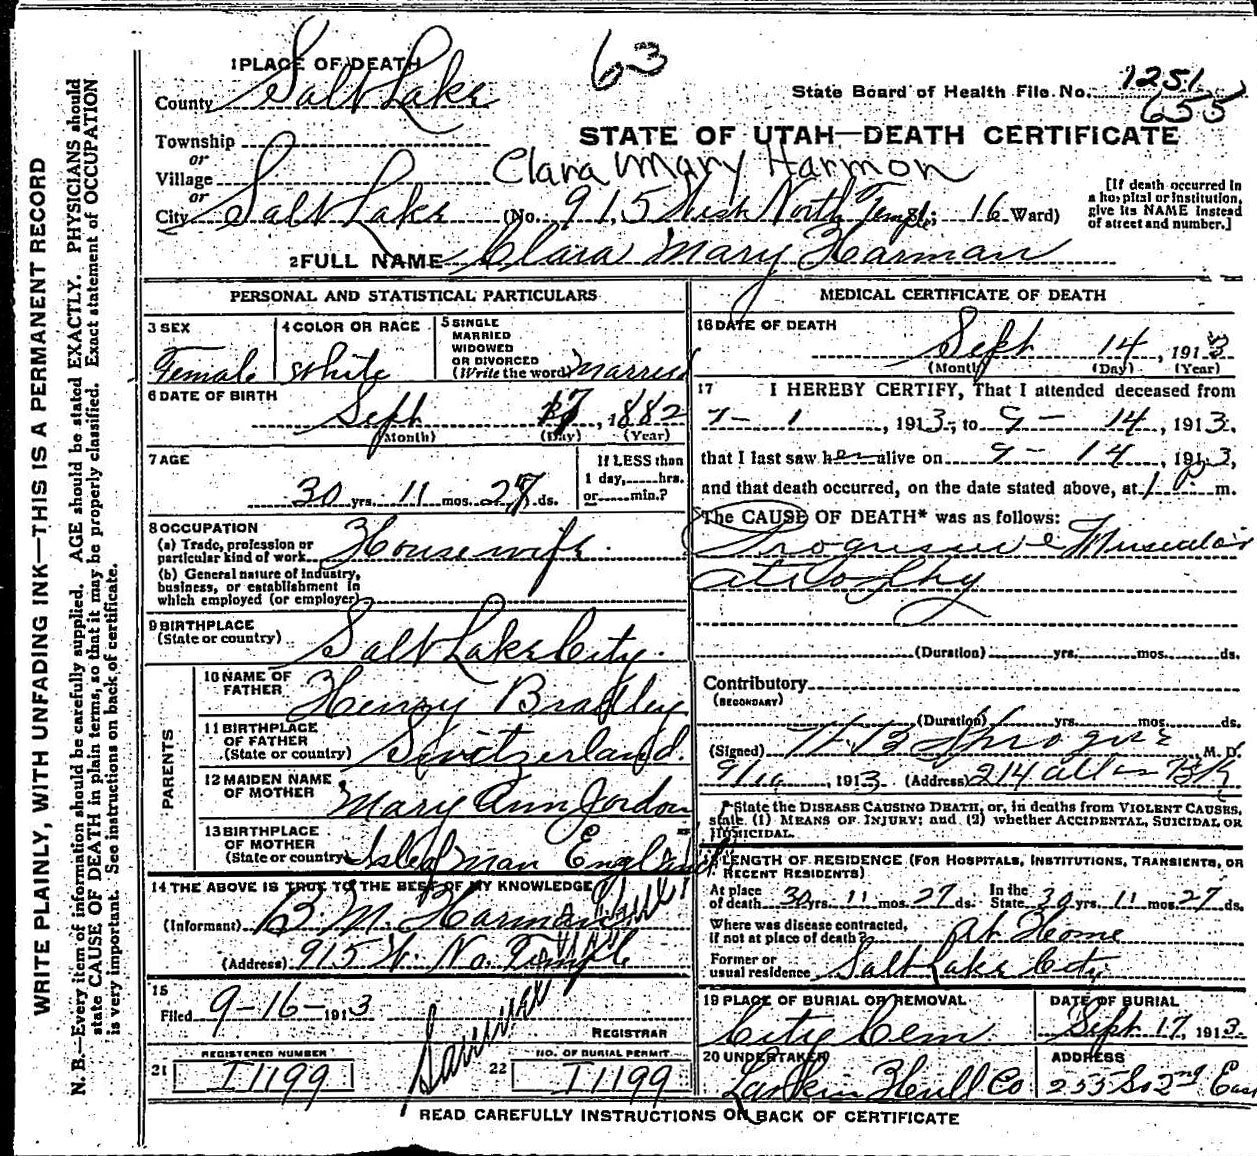 WRITE PLAINLY, WITH UNFADING INK—THIS IS A PERMANENT RECORD
N. B.—Every item of information should be carefully supplied. AGE should be stated EXACTLY. PHYSICIANS should
state CAUSE OF DEATH in plain terms, so that it may be properly classified. Exact statement of OCCUPATION
is very important. See instructions on back of certificate.
63
1 PLACE OF DEATH
County Salt Lake
State Board of Health File No. 1251
655
Township
or
Village
or
STATE OF UTAH—DEATH CERTIFICATE
Clara Mary Harmon
City Salt Lake (No. 915 West North Temple St; 16 Ward)
[If death occurred in
a hospital or institution,
give its NAME instead
of street and number.]
2 FULL NAME Clara Mary Harman
PERSONAL AND STATISTICAL PARTICULARS
3 SEX
Female
4 COLOR OR RACE
White
5 SINGLE
MARRIED
WIDOWED
OR DIVORCED
(Write the word) Married
6 DATE OF BIRTH
Sept 17, 1882
(Month) (Day) (Year)
7 AGE
30 yrs. 11 mos. 27 ds.
If LESS than
1 day, hrs.
or min.?
8 OCCUPATION
(a) Trade, profession or
particular kind of work Housewife
(b) General nature of industry,
business, or establishment in
which employed (or employer)
9 BIRTHPLACE
(State or country) Salt Lake City.
PARENTS
10 NAME OF
FATHER Henry Bradley
11 BIRTHPLACE
OF FATHER
(State or country) Switzerland.
12 MAIDEN NAME
OF MOTHER Mary Ann Jordon
13 BIRTHPLACE
OF MOTHER
(State or country) Isle of man England
14 THE ABOVE IS TRUE TO THE BEST OF MY KNOWLEDGE
(Informant) B. M. Harman
(Address) 915 W. No. Temple
15
Filed 9-16-1913
REGISTRAR
21 REGISTERED NUMBER
I1199
22 NO. OF BURIAL PERMIT
I1199
MEDICAL CERTIFICATE OF DEATH
16 DATE OF DEATH
Sept 14, 1913
(Month) (Day) (Year)
17 I HEREBY CERTIFY, That I attended deceased from
7-1, 1913, to 9-14, 1913,
that I last saw her alive on 9-14, 1913,
and that death occurred, on the date stated above, at 1 P m.
The CAUSE OF DEATH* was as follows:
Progressive Muscular
atrophy
(Duration) yrs. mos. ds.
Contributory
(SECONDARY)
(Duration) yrs. mos. ds.
(Signed) H B Sprague, M. D.
9/16, 1913 (Address) 214 Atlas Bk
*State the DISEASE CAUSING DEATH, or, in deaths from VIOLENT CAUSES,
state (1) MEANS OF INJURY; and (2) whether ACCIDENTAL, SUICIDAL OR
HOMICIDAL.
18 LENGTH OF RESIDENCE (FOR HOSPITALS, INSTITUTIONS, TRANSIENTS, OR
RECENT RESIDENTS)
At place
of death 30 yrs. 11 mos. 27 ds.
In the
State 30 yrs. 11 mos. 27 ds.
Where was disease contracted,
if not at place of death? At Home
Former or
usual residence Salt Lake City
19 PLACE OF BURIAL OR REMOVAL
City Cem
DATE OF BURIAL
Sept. 17, 1913
20 UNDERTAKER
Larkin Hull Co
ADDRESS
255 So 2nd East
READ CAREFULLY INSTRUCTIONS ON BACK OF CERTIFICATE